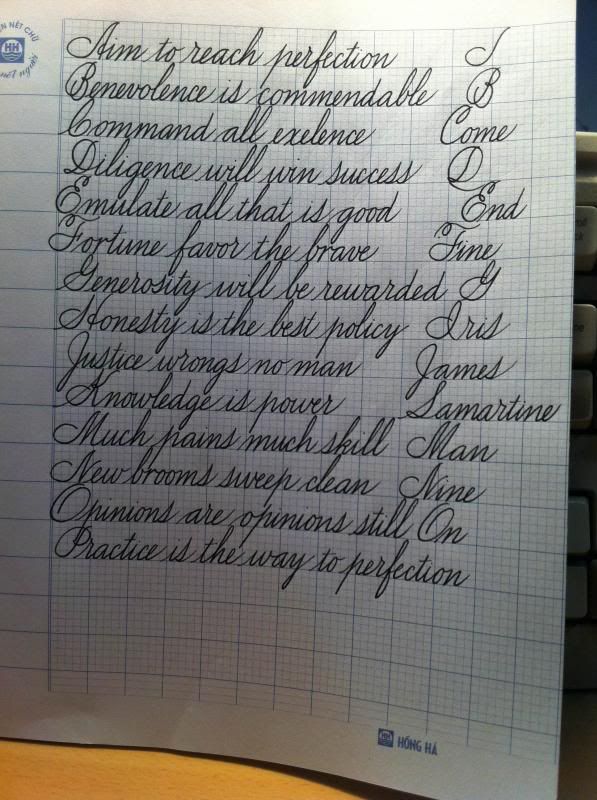 N NÉT CHỮ
HH
nét người
Aim to reach perfection
Benevolence is commendable B
Command all exelence Come
Diligence will win success D
Emulate all that is good End
Fortune favor the brave Fine
Generosity will be rewarded G
Honesty is the best policy Iris
Justice wrongs no man James
Knowledge is power Lamartine
Much pains much skill Man
New brooms sweep clean Nine
Opinions are opinions still On
Practice is the way to perfection
HH HỒNG HÀ